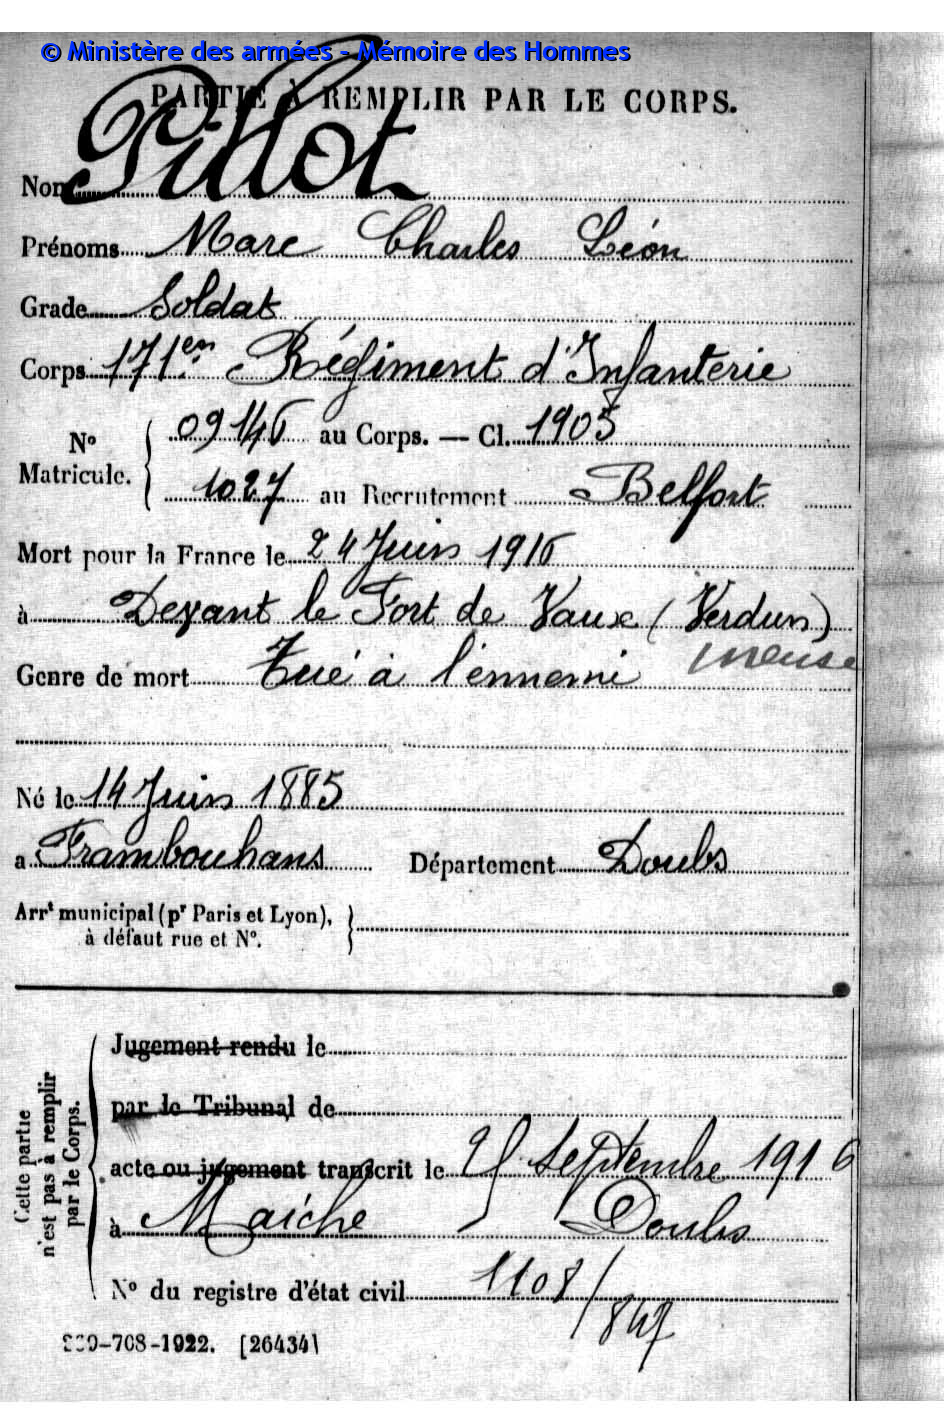 © Ministère des armées - Mémoire des Hommes
PARTIE À REMPLIR PAR LE CORPS.
Nom Pillot
Prénoms Marc Charles Léon
Grade Soldat
Corps 171em Régiment d'Infanterie
N° Matricule. 09146 au Corps. — Cl. 1905
1027 au Recrutement Belfort
Mort pour la France le 24 Juin 1916
à Devant le Fort de Vaux (Verdun)
Meuse
Genre de mort Tué à l'ennemi
Né le 14 Juin 1885
à Frambouhans Département Doubs
Arrt municipal (pr Paris et Lyon),
à défaut rue et N°.
Cette partie n'est pas à remplir par le Corps.
Jugement rendu le
par le Tribunal de
acte ou jugement transcrit le 25 Septembre 1916
à Maîche Doubs
N° du registre d'état civil 1108/847
-708-1922. [26434]